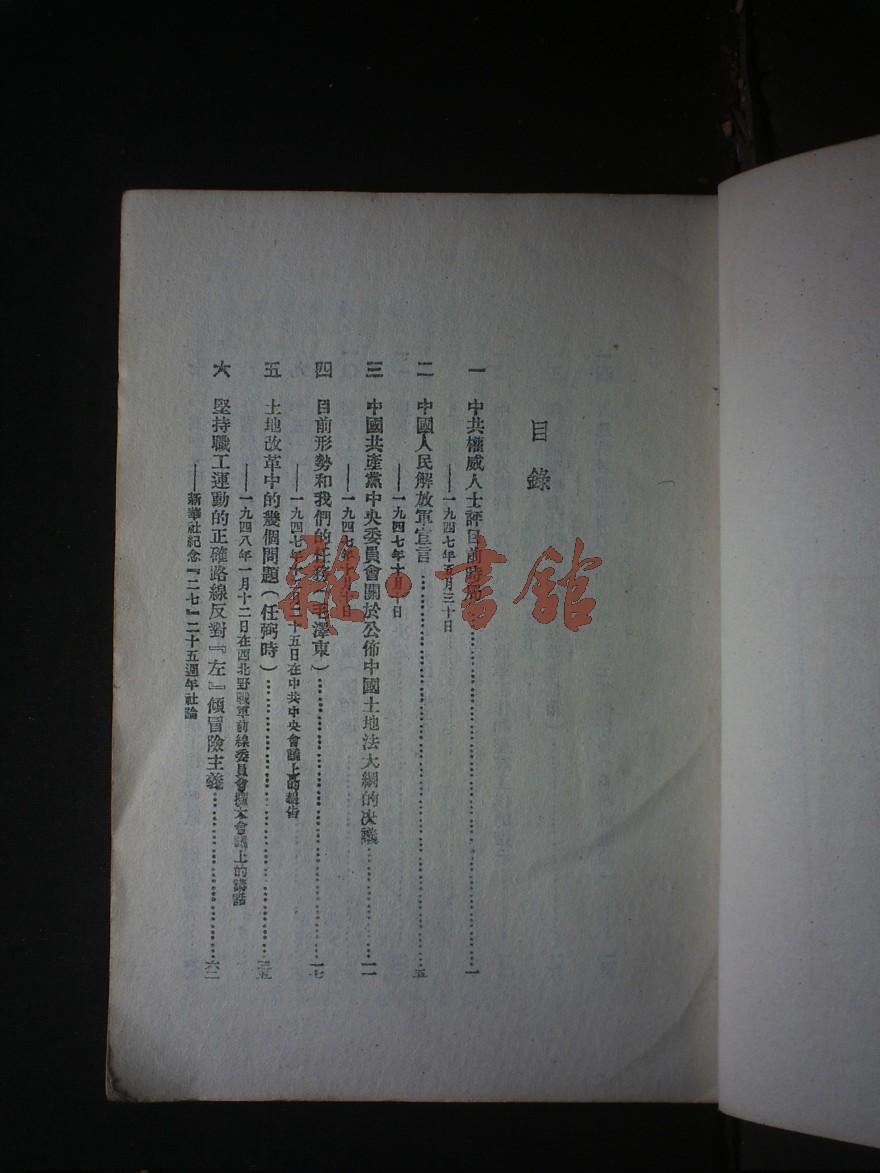 目錄
一 中共權威人士評目前時局……一
——一九四七年五月三十日
二 中國人民解放軍宣言……五
——一九四七年十月十日
三 中國共產黨中央委員會關於公佈中國土地法大綱的決議……一一
——一九四七年十月十日
四 目前形勢和我們的任務（毛澤東）……一七
——一九四七年十二月二十五日在中共中央會議上的報告
五 土地改革中的幾個問題（任弼時）……三五
——一九四八年一月十二日在西北野戰軍前線委員會擴大會議上的講話
六 堅持職工運動的正確路線反對『左』傾冒險主義……六二
——新華社紀念『二七』二十五週年社論
雜·書館